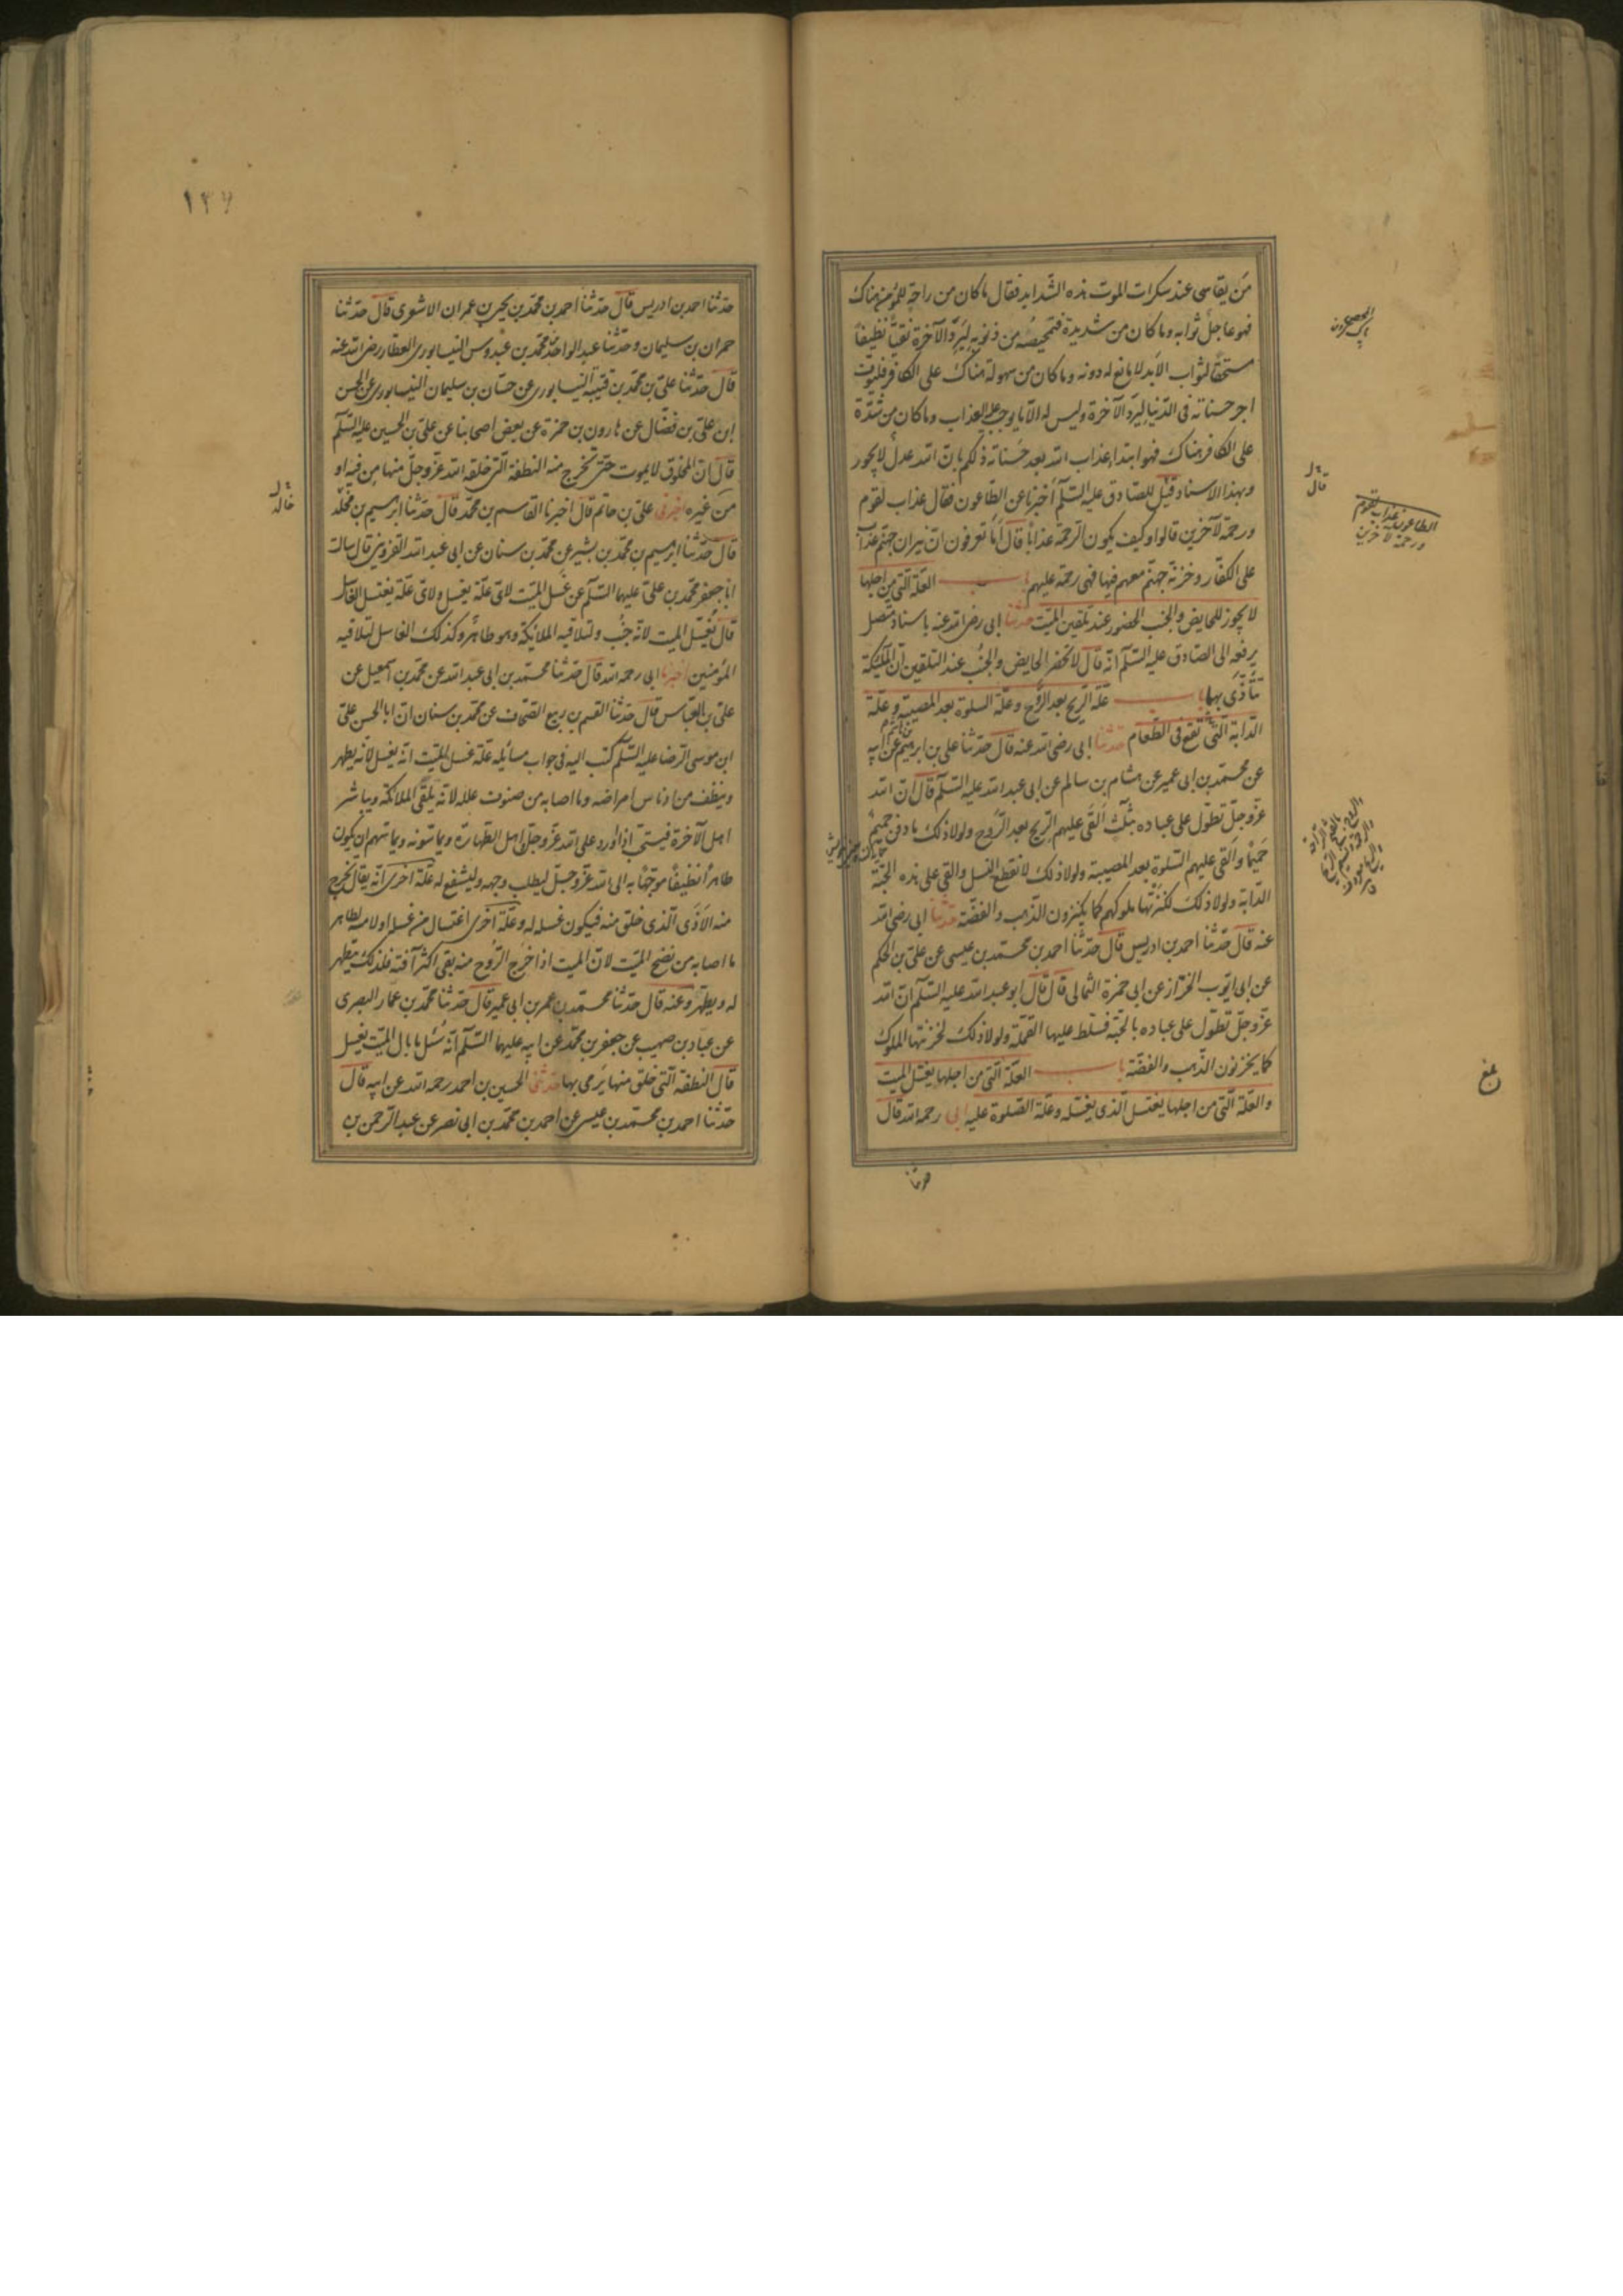 من يقاسى عند سكرات الموت هذه الشدايد فقال ما كان من راحة للمؤمن هناك
فهو عاجل ثوابه وما كان من شديدة فتمحيصه من ذنوبه ليرد الآخرة نقيا نظيفا
مستحقا لثواب الابد لا مانع له دونه وما كان من سهولة هناك على الكافر فليوفى
اجر حسناته فى الدنيا ليرد الآخرة وليس له الا ما يوجب عليه العذاب وما كان من شدة
على الكافر هناك فهو ابتداء عذاب الله بعد حسناته ذلكم بان الله عدل لا يجور
وبهذا الاسناد قيل للصادق عليه السلم أخبرنا عن الطاعون فقال عذاب لقوم
ورحمة لآخرين قالوا وكيف يكون الرحمة عذابا قال أما تعرفون ان نيران جهنم عذاب
على الكفار وخزنة جهنم معهم فيها فهى رحمة عليهم باب العلة التى من اجلها
لا يجوز للحايض والجنب الحضور عند تلقين الميت حدثنا ابى رضى الله عنه باسناد متصل
يرفعه الى الصادق عليه السلم انه قال لا تحضر الحايض والجنب عند التلقين ان الملئكة
تتأذى بهما باب علة الريح بعد الروح وعلة السلوة بعد المصيبة وعلة
الدابة التى تقع فى الطعام حدثنا ابى رضى الله عنه قال حدثنا على بن ابرهيم بن هاشم عن ابيه
عن محمد بن ابى عمير عن هشام بن سالم عن ابى عبد الله عليه السلم قال ان الله
عز وجل تطول على عباده بثلث القى عليهم الريح بعد الروح ولولا ذلك ما دفن حميم
حميما والقى عليهم السلوة بعد المصيبة ولولا ذلك لانقطع النسل والقى على هذه الحبة
الدابة ولولا ذلك لكنزتها ملوكهم كما يكنزون الذهب والفضة حدثنا ابى رضى الله
عنه قال حدثنا احمد بن ادريس قال حدثنا احمد بن محمد بن عيسى عن على بن الحكم
عن ابى ايوب الخزاز عن ابى حمزة الثمالى قال قال ابو عبد الله عليه السلم ان الله
عز وجل تطول على عباده بالحبة فسلط عليها القملة ولولا ذلك لخزنتها الملوك
كما يخزنون الذهب والفضة باب العلة التى من اجلها يغسل الميت
والعلة التى من اجلها يغتسل الذى يغسله وعلة الصلوة عليه ابى رحمه الله قال
قال
الطاعون عذاب لقوم
ورحمة لآخرين
بلغ
حدثنا
١٣٧
حدثنا احمد بن ادريس قال حدثنا احمد بن محمد بن يحيى بن عمران الاشعرى قال حدثنا
حمران بن سليمان وحدثنا عبد الواحد بن محمد بن عبدوس النيسابورى العطار رضى الله عنه
قال حدثنا على بن محمد بن قتيبة النيسابورى عن حسان بن سليمان النيسابورى عن الحسن
بن على بن فضال عن هارون بن حمزة عن بعض اصحابنا عن على بن الحسين عليه السلم
قال ان المخلوق لا يموت حتى تخرج منه النطفة التى خلقه الله عز وجل منها من فيه او
من غيره اخبرنى على بن حاتم قال اخبرنا القاسم بن محمد قال حدثنا ابرهيم بن مخلد
قال حدثنا ابرهيم بن محمد بن بشير عن محمد بن سنان عن ابى عبد الله القزوينى قال سالت
ابا جعفر محمد بن على عليهما السلم عن غسل الميت لاى علة يغسل ولاى علة يغتسل الغاسل
قال يغسل الميت لانه جنب ولتلاقيه الملائكة وهو طاهر وكذلك الغاسل لتلاقيه
المؤمنين اخبرنا ابى رحمه الله قال حدثنا محمد بن ابى عبد الله عن محمد بن اسمعيل عن
على بن العباس قال حدثنا القسم بن ربيع الصحاف عن محمد بن سنان ان ابا الحسن على
ابن موسى الرضا عليه السلم كتب اليه فى جواب مسايله علة غسل الميت انه يغسل لانه يطهر
وينظف من ادناس امراضه وما اصابه من صنوف علله لانه يلقى الملائكة ويباشر
اهل الآخرة فيستحب اذا ورد على الله عز وجل اهل الطهارة ويماسونه ويماسهم ان يكون
طاهرا نظيفا موجها به الى الله عز وجل ليطلب وجهه وليشفع له علة اخرى انه يقال يخرج
منه الاذى الذى خلق منه فيكون غسله له وعلة اخرى اغتسال من غسله او لامسه لظاهر
ما اصابه من نضح الميت لان الميت اذا خرج الروح منه بقى اكثر آفته فلذلك يتطهر
له ويطهر وعنه قال حدثنا محمد بن عمر بن ابى عمير قال حدثنا محمد بن عمار البصرى
عن عباد بن صهيب عن جعفر بن محمد عن ابيه عليهما السلم انه سئل ما بال الميت يغسل
قال النطفة التى خلق منها يرمى بها حدثنى الحسين بن احمد رحمه الله عن ابيه قال
حدثنا احمد بن محمد بن عيسى عن احمد بن محمد بن ابى نصر عن عبد الرحمن بن